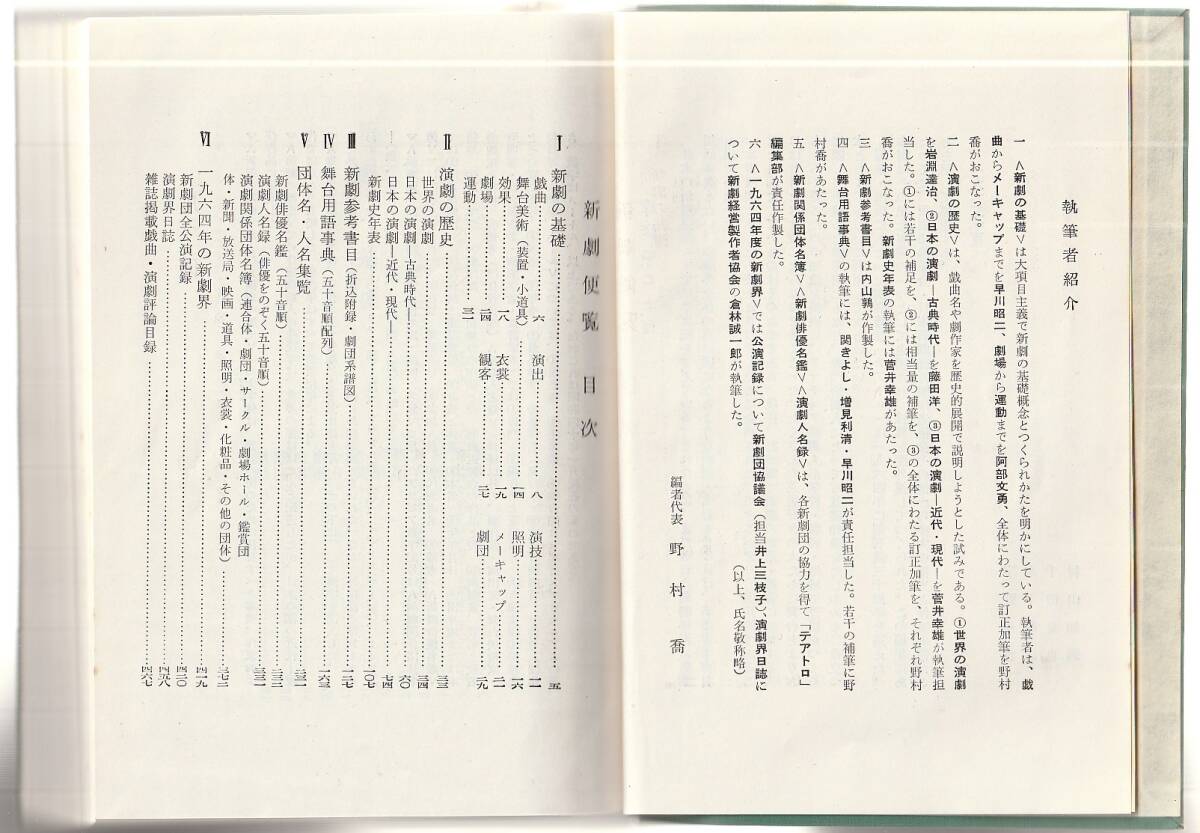 執筆者紹介
一 ＜新劇の基礎＞は大項目主義で新劇の基礎概念とつくられかたを明かにしている。執筆者は、戯
曲からメーキャップまでを早川昭二、劇場から運動までを阿部文勇、全体にわたって訂正加筆を野村
喬がおこなった。
二 ＜演劇の歴史＞は、戯曲名や劇作家を歴史的展開で説明しようとした試みである。①世界の演劇
を岩淵達治、②日本の演劇―古典時代―を藤田洋、③日本の演劇―近代・現代―を菅井幸雄が執筆担
当した。①には若干の補足を、②には相当量の補筆を、③の全体にわたる訂正加筆を、それぞれ野村
喬がおこなった。新劇史年表の執筆には菅井幸雄があたった。
三 ＜新劇参考書目＞は内山鶉が作製した。
四 ＜舞台用語事典＞の執筆には、関きよし・増見利清・早川昭二が責任担当した。若干の補筆に野
村喬があたった。
五 ＜新劇関係団体名簿＞＜新劇俳優名鑑＞＜演劇人名録＞は、各新劇団の協力を得て「テアトロ」
編集部が責任作製した。
六 ＜一九六四年度の新劇界＞では公演記録について新劇団協議会（担当井上三枝子）、演劇界日誌に
ついて新劇経営製作者協会の倉林誠一郎が執筆した。
（以上、氏名敬称略）
編者代表 野村喬
新劇便覧 目次
Ⅰ 新劇の基礎……五
戯曲……六 演出……八 演技……一一
舞台美術（装置・小道具）……一四 照明……一六
効果……一八 衣裳……一九 メーキャップ……二一
劇場……二四 観客……二七 劇団……二九
運動……三一
Ⅱ 演劇の歴史……三三
世界の演劇……三四
日本の演劇―古典時代―……六〇
日本の演劇―近代・現代―……七四
新劇史年表……一〇七
Ⅲ 新劇参考書目（折込附録・劇団系譜図）……一二七
Ⅳ 舞台用語事典（五十音順配列）……一六三
Ⅴ 団体名・人名集覧……二三一
新劇俳優名鑑（五十音順）……二三二
演劇人名録（俳優をのぞく五十音順）……三三一
演劇関係団体名簿（連合体・劇団・サークル・劇場ホール・鑑賞団
体・新聞・放送局・映画・道具・照明・衣裳・化粧品・その他の団体）……三七二
Ⅵ 一九六四年の新劇界……四一九
新劇団全公演記録……四二〇
演劇界日誌……四五八
雑誌掲載戯曲・演劇評論目録……四六七